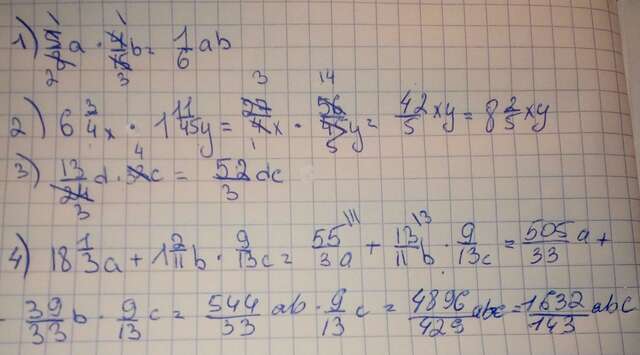 1) 9/28 a · 14/15 b = 1/6 ab
2) 6 3/4 x · 1 11/45 y = 27/4 x · 56/45 y = 42/5 xy = 8 2/5 xy
3) 13/24 d · 32 c = 52/3 dc
4) 18 1/3 a + 1 2/11 b · 9/13 c = 55/3 a + 13/11 b · 9/13 c = 505/33 a +
39/33 b · 9/13 c = 544/33 ab · 9/13 c = 4896/429 abc = 1632/143 abc